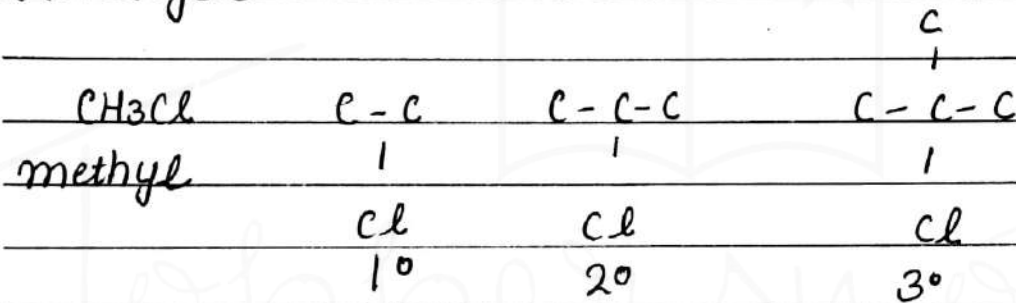 C
CH3Cl C-C C-C-C C-C-C
methyl
Cl Cl Cl
1° 2° 3°